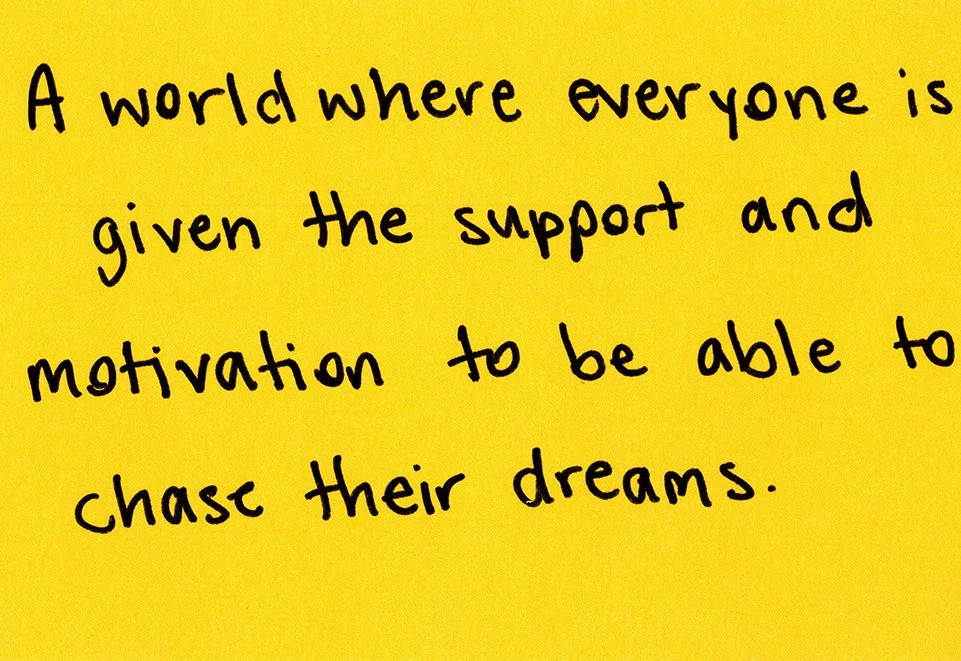 A world where everyone is
given the support and
motivation to be able to
chase their dreams.